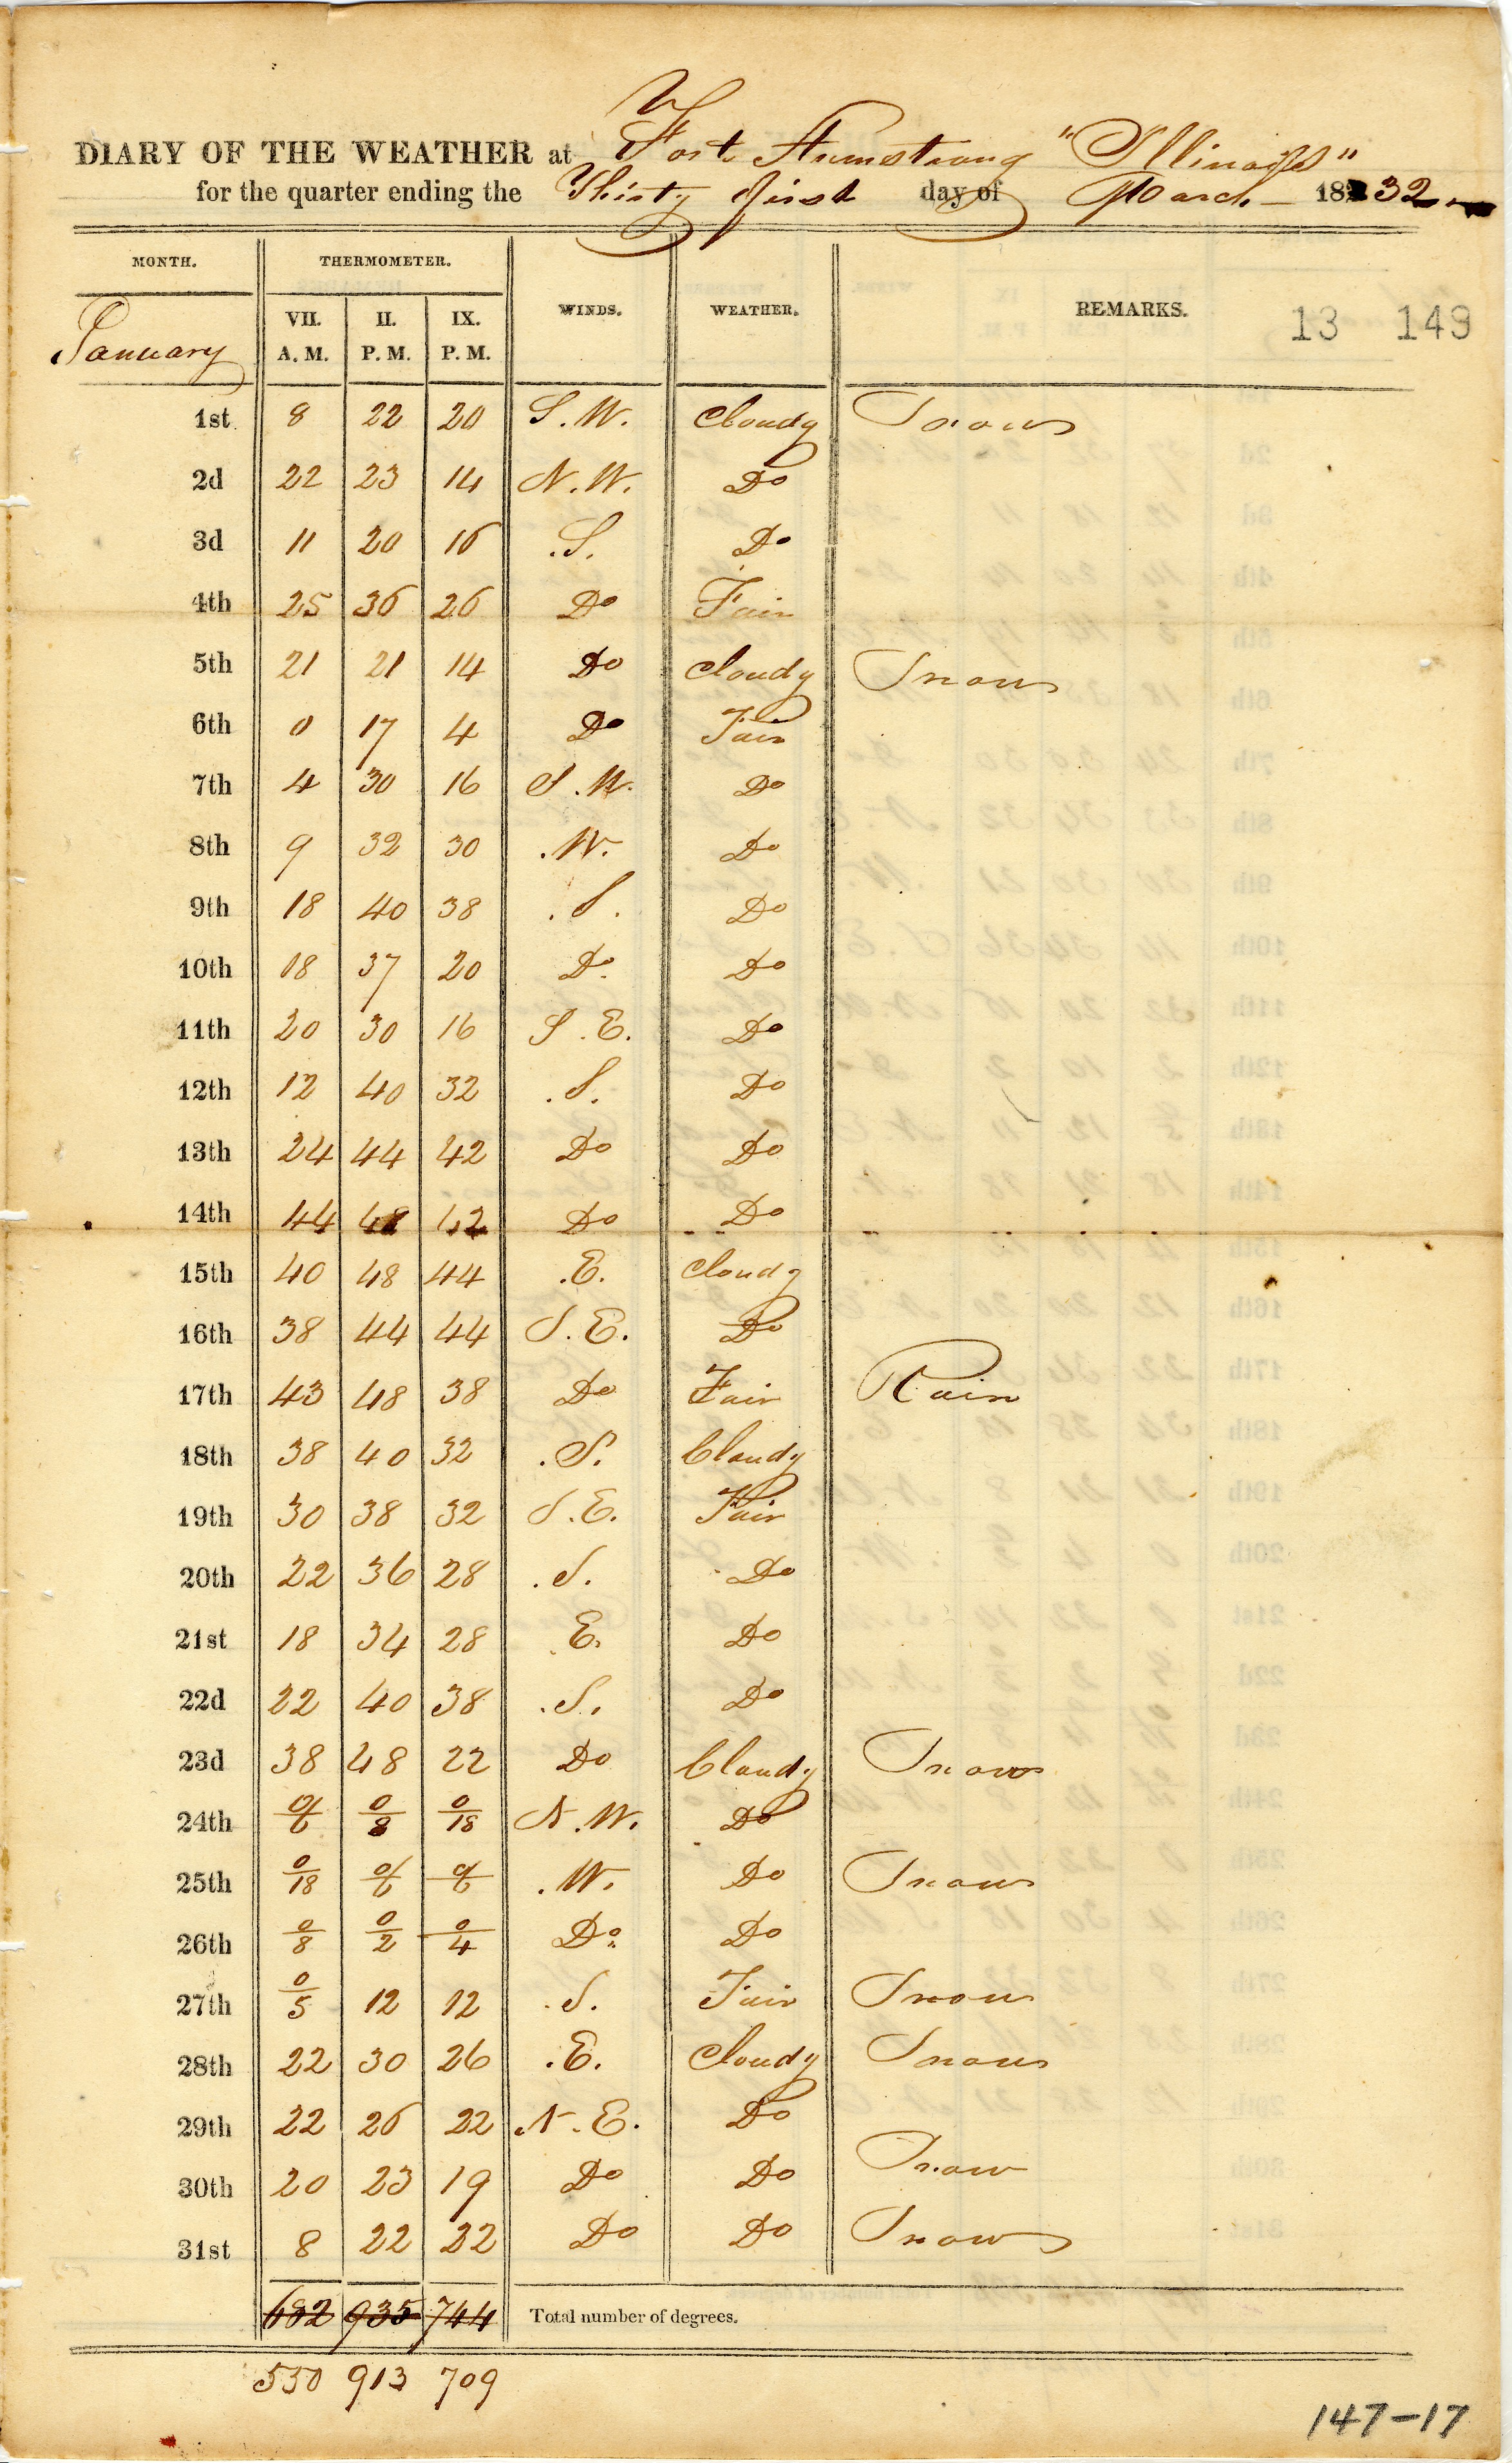 DIARY OF THE WEATHER at Fort Armstrong "Illinois"
for the quarter ending the Thirty first day of March 1832
MONTH. THERMOMETER. WINDS. WEATHER. REMARKS. 13 149
January VII. A. M. II. P. M. IX. P. M.
1st 8 22 20 S. W. Cloudy Snow
2d 22 23 14 N. W. Do
3d 11 20 16 S. Do
4th 25 36 26 Do Fair
5th 21 21 14 Do Cloudy Snow
6th 0 17 4 Do Fair
7th 4 30 16 S. W. Do
8th 9 32 30 W. Do
9th 18 40 38 S. Do
10th 18 37 20 Do Do
11th 20 30 16 S. E. Do
12th 12 40 32 S. Do
13th 24 44 42 Do Do
14th 44 48 42 Do Do
15th 40 48 44 E. Cloudy
16th 38 44 44 S. E. Do
17th 43 48 38 Do Fair Rain
18th 38 40 32 S. Cloudy
19th 30 38 32 S. E. Fair
20th 22 36 28 S. Do
21st 18 34 28 E. Do
22d 22 40 38 S. Do
23d 38 48 22 Do Cloudy Snow
24th 0/6 0/8 0/18 N. W. Do
25th 0/18 0/6 0/6 W. Do Snow
26th 0/8 0/2 0/4 Do Do
27th 0/5 12 12 S. Fair Snow
28th 22 30 26 E. Cloudy Snow
29th 22 26 22 N. E. Do
30th 20 23 19 Do Do Snow
31st 8 22 22 Do Do Snow
682 935 744 Total number of degrees.
550 913 709
147-17